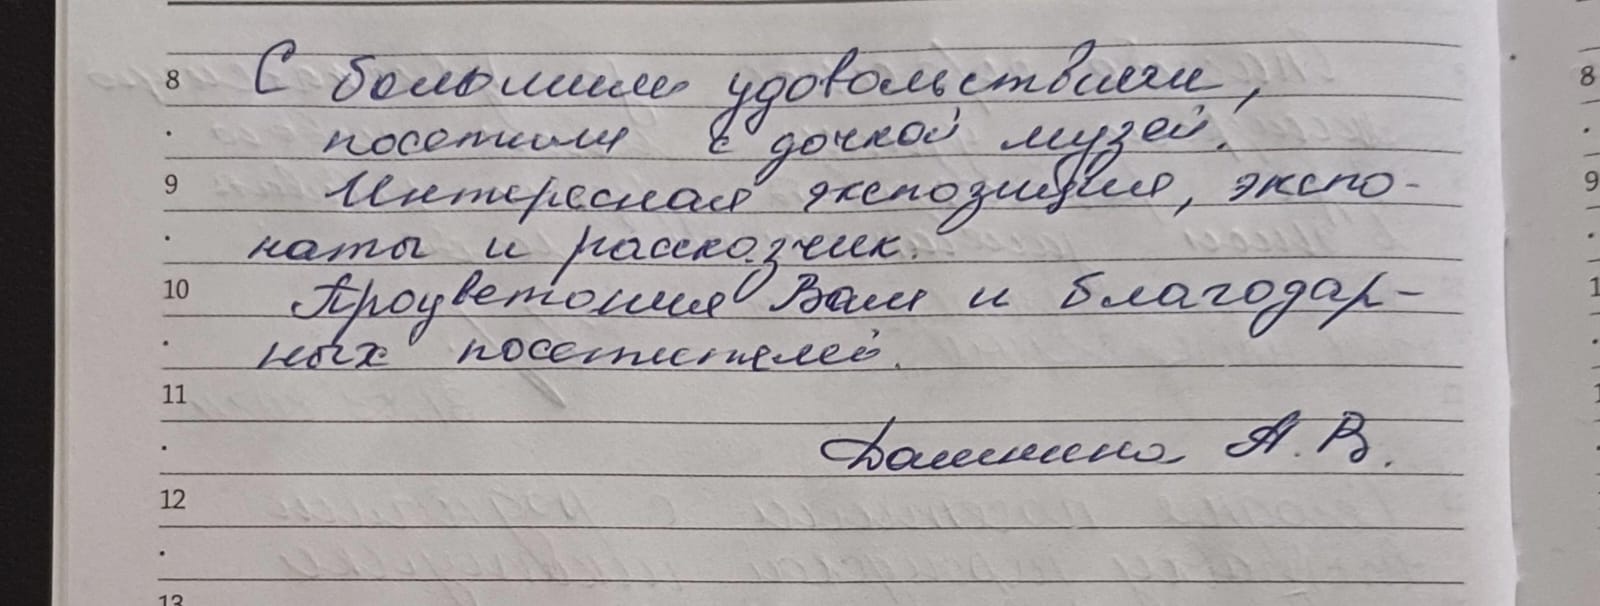 8 С большим удовольствием,
посетили с дочкой музей.
9 Интересная экспозиция, экспо-
наты и рассказчик.
10 Процветания Вам и благодар-
ных посетителей.
11
А. В.
12
13
8
9